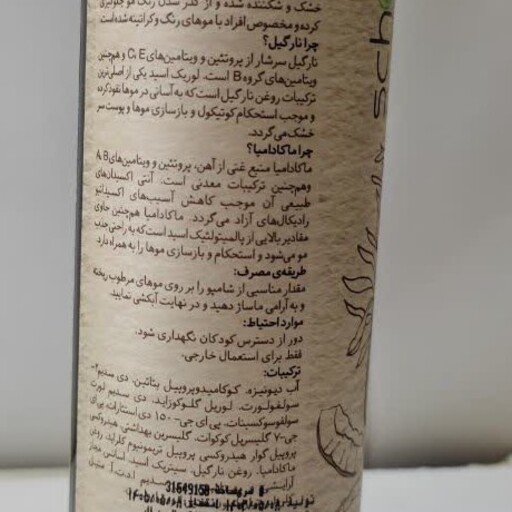 خشک و شکننده شده و از کدر شدن رنگ مو جلوگیری
کرده و مخصوص افراد با موهای رنگ و کراتینه شده است
چرا نارگیل؟
نارگیل سرشار از پروتئین و ویتامین‌های C، E و همچنین
ویتامین‌های گروه B است. لوریک اسید یکی از اصلی‌ترین
ترکیبات روغن نارگیل است که به آسانی در موها نفوذ کرده
و موجب استحکام کوتیکول و بازسازی موها و پوست سر
خشک می‌گردد.
چرا ماکادامیا؟
ماکادامیا منبع غنی از آهن، پروتئین و ویتامین‌های A B
وهم‌چنین ترکیبات معدنی است. آنتی اکسیدان‌های
طبیعی آن موجب کاهش آسیب‌های اکسیداتیو
رادیکال‌های آزاد می‌گردد. ماکادامیا همچنین حاوی
مقادیر بالایی از پالمیتولئیک اسید است که به راحتی جذب
مو می‌شود و استحکام و بازسازی موها را به همراه دارد.
طریقه‌ی مصرف:
مقدار مناسبی از شامپو را بر روی موهای مرطوب ریخته
و به آرامی ماساژ دهید و در نهایت آبکشی نمایید.
موارد احتیاط:
دور از دسترس کودکان نگهداری شود.
فقط برای استعمال خارجی.
ترکیبات:
آب دیونیزه، کوکامیدوپروپیل بتائین، دی سدیم
سولفولورت، لوریل گلوکوزاید، دی سدیم لورت
سولفوسوکسینات، پی ای جی-۱۵۰ دی استئارات، پی ای
جی-۷ گلیسریل کوکوات، گلیسرین بهداشتی، هیدروکسی
پروپیل گوار هیدروکسی پروپیل تریمونیوم کلراید، روغن
ماکادامیا، روغن نارگیل، سیتریک اسید، اسانس مجاز
آرایشی
31649158
تولید
sch